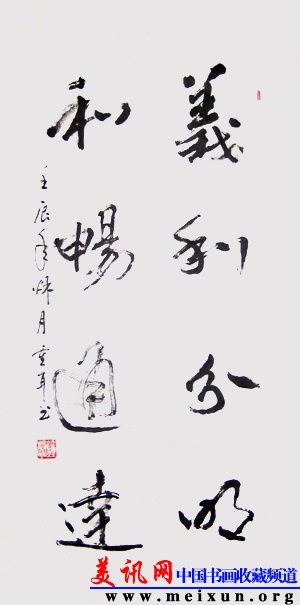 義利分明
和暢通達
壬辰年
月
書
美讯网
中国书画收藏频道
www.meixun.org